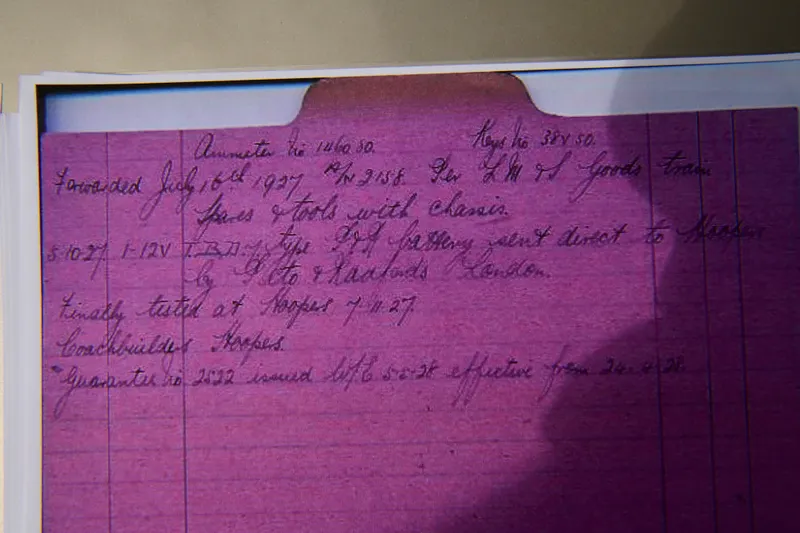 Ammeter No 1460 50. Keys No 38V 50.
Forwarded July 16th 1927 A/N 2158. Per L M & S Goods train
Spares & tools with chassis.
5-10-27. 1-12V type P&R battery sent direct to Hoopers
by Peto & Radfords London.
Finally tested at Hoopers 7-11-27.
Coachbuilders Hoopers.
Guarantee No 2522 issued W/E 5-5-28 effective from 24-4-28.